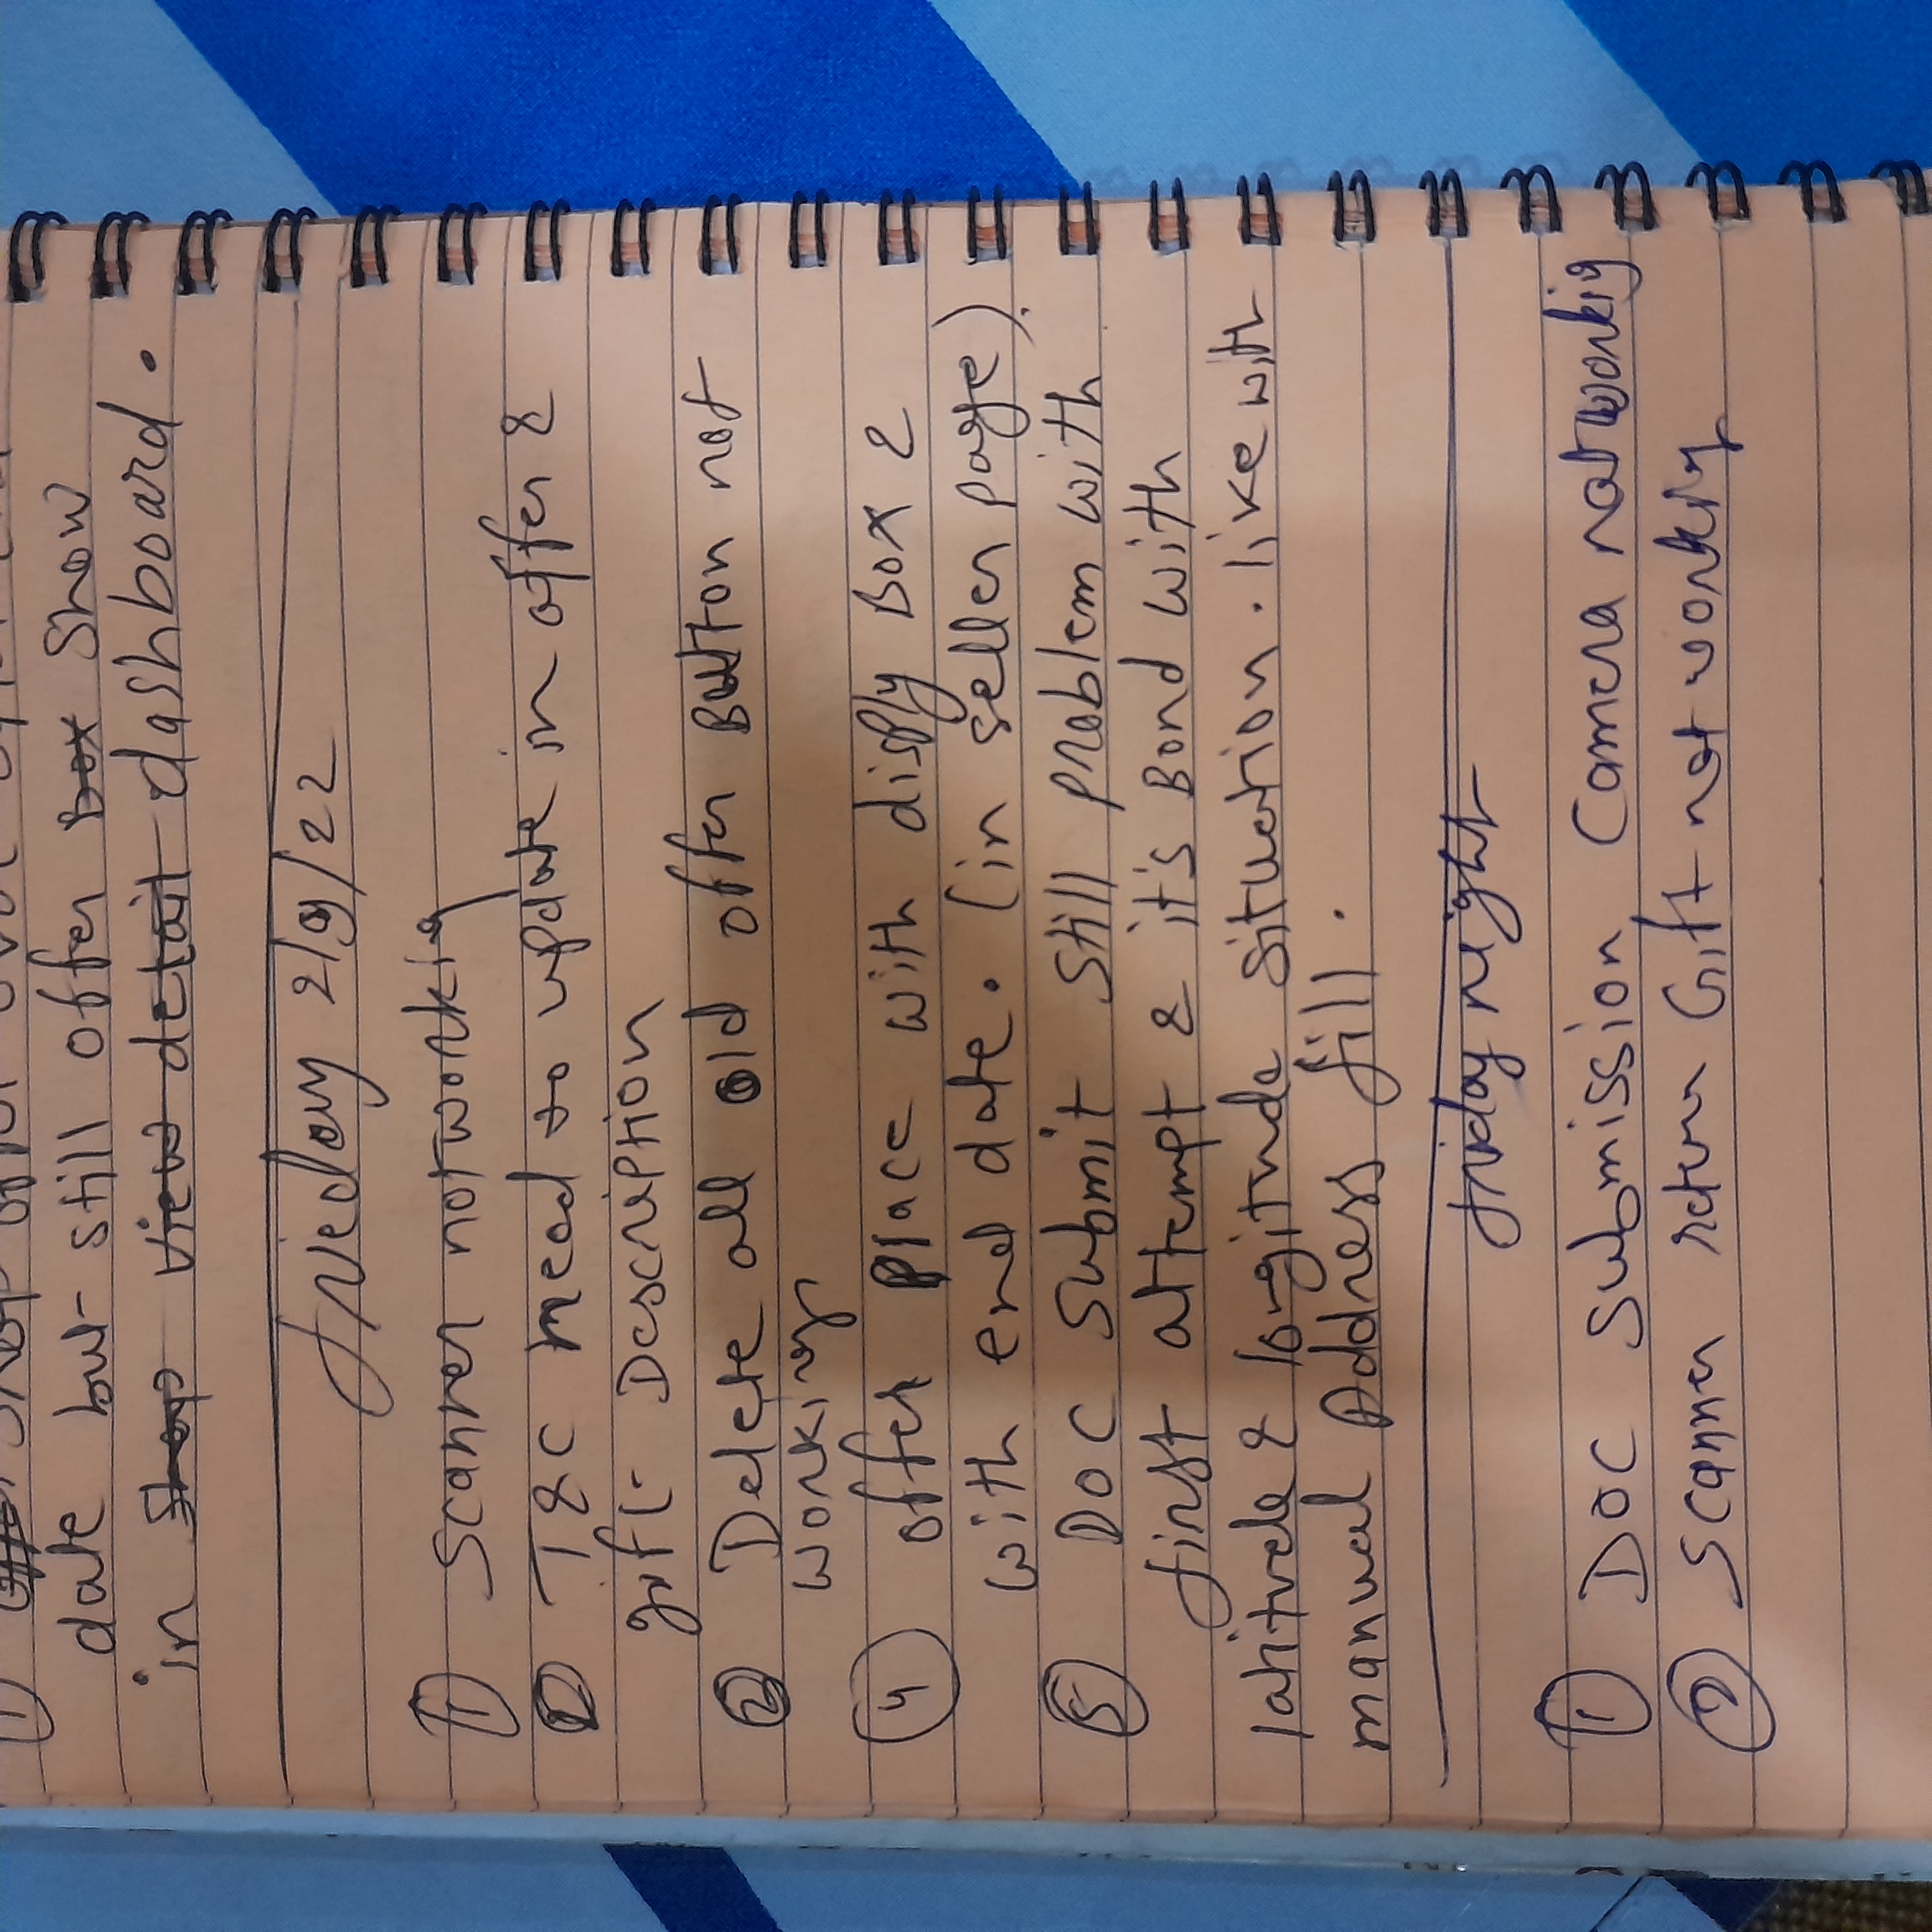 ① Shop offer over after end
date but still offer Box Show
in Shop view detail dashboard.
frieday 2/9/22
① Scanner not workig
② T&C need to update in offer &
gift Description
③ Delete all old offer Button not
working
④ offer place with disply Box &
with end date. (in seller page).
⑤ DOC Submit still problem with
first attempt & it's Bond with
latitude & longitude situation. like with
manual Address fill.
friday night
① DOC submission, Camera not workig
② Scanner return Gift not workig